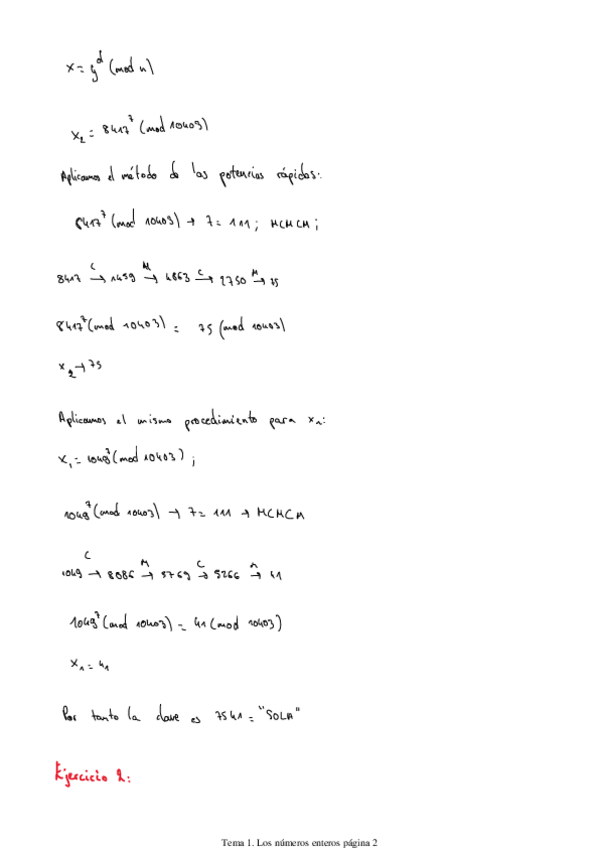 x = y^d (mod n)
x₂ = 8417^7 (mod 10403)
Aplicamos el método de las potencias rápidas:
8417^7 (mod 10403) → 7 = 111; MCMCM;
8417 C→ 1459 M→ 4863 C→ 2750 M→ 75
8417^7 (mod 10403) = 75 (mod 10403)
x₂ → 75
Aplicamos el mismo procedimiento para x₁:
x₁ = 1049^7 (mod 10403);
1049^7 (mod 10403) → 7 = 111 → MCMCM
1049 C→ 8086 M→ 3769 C→ 5266 M→ 41
1049^7 (mod 10403) = 41 (mod 10403)
x₁ = 41
Por tanto la clave es 7541 = "SOLA"
Ejercicio 2:
Tema 1. Los números enteros página 2